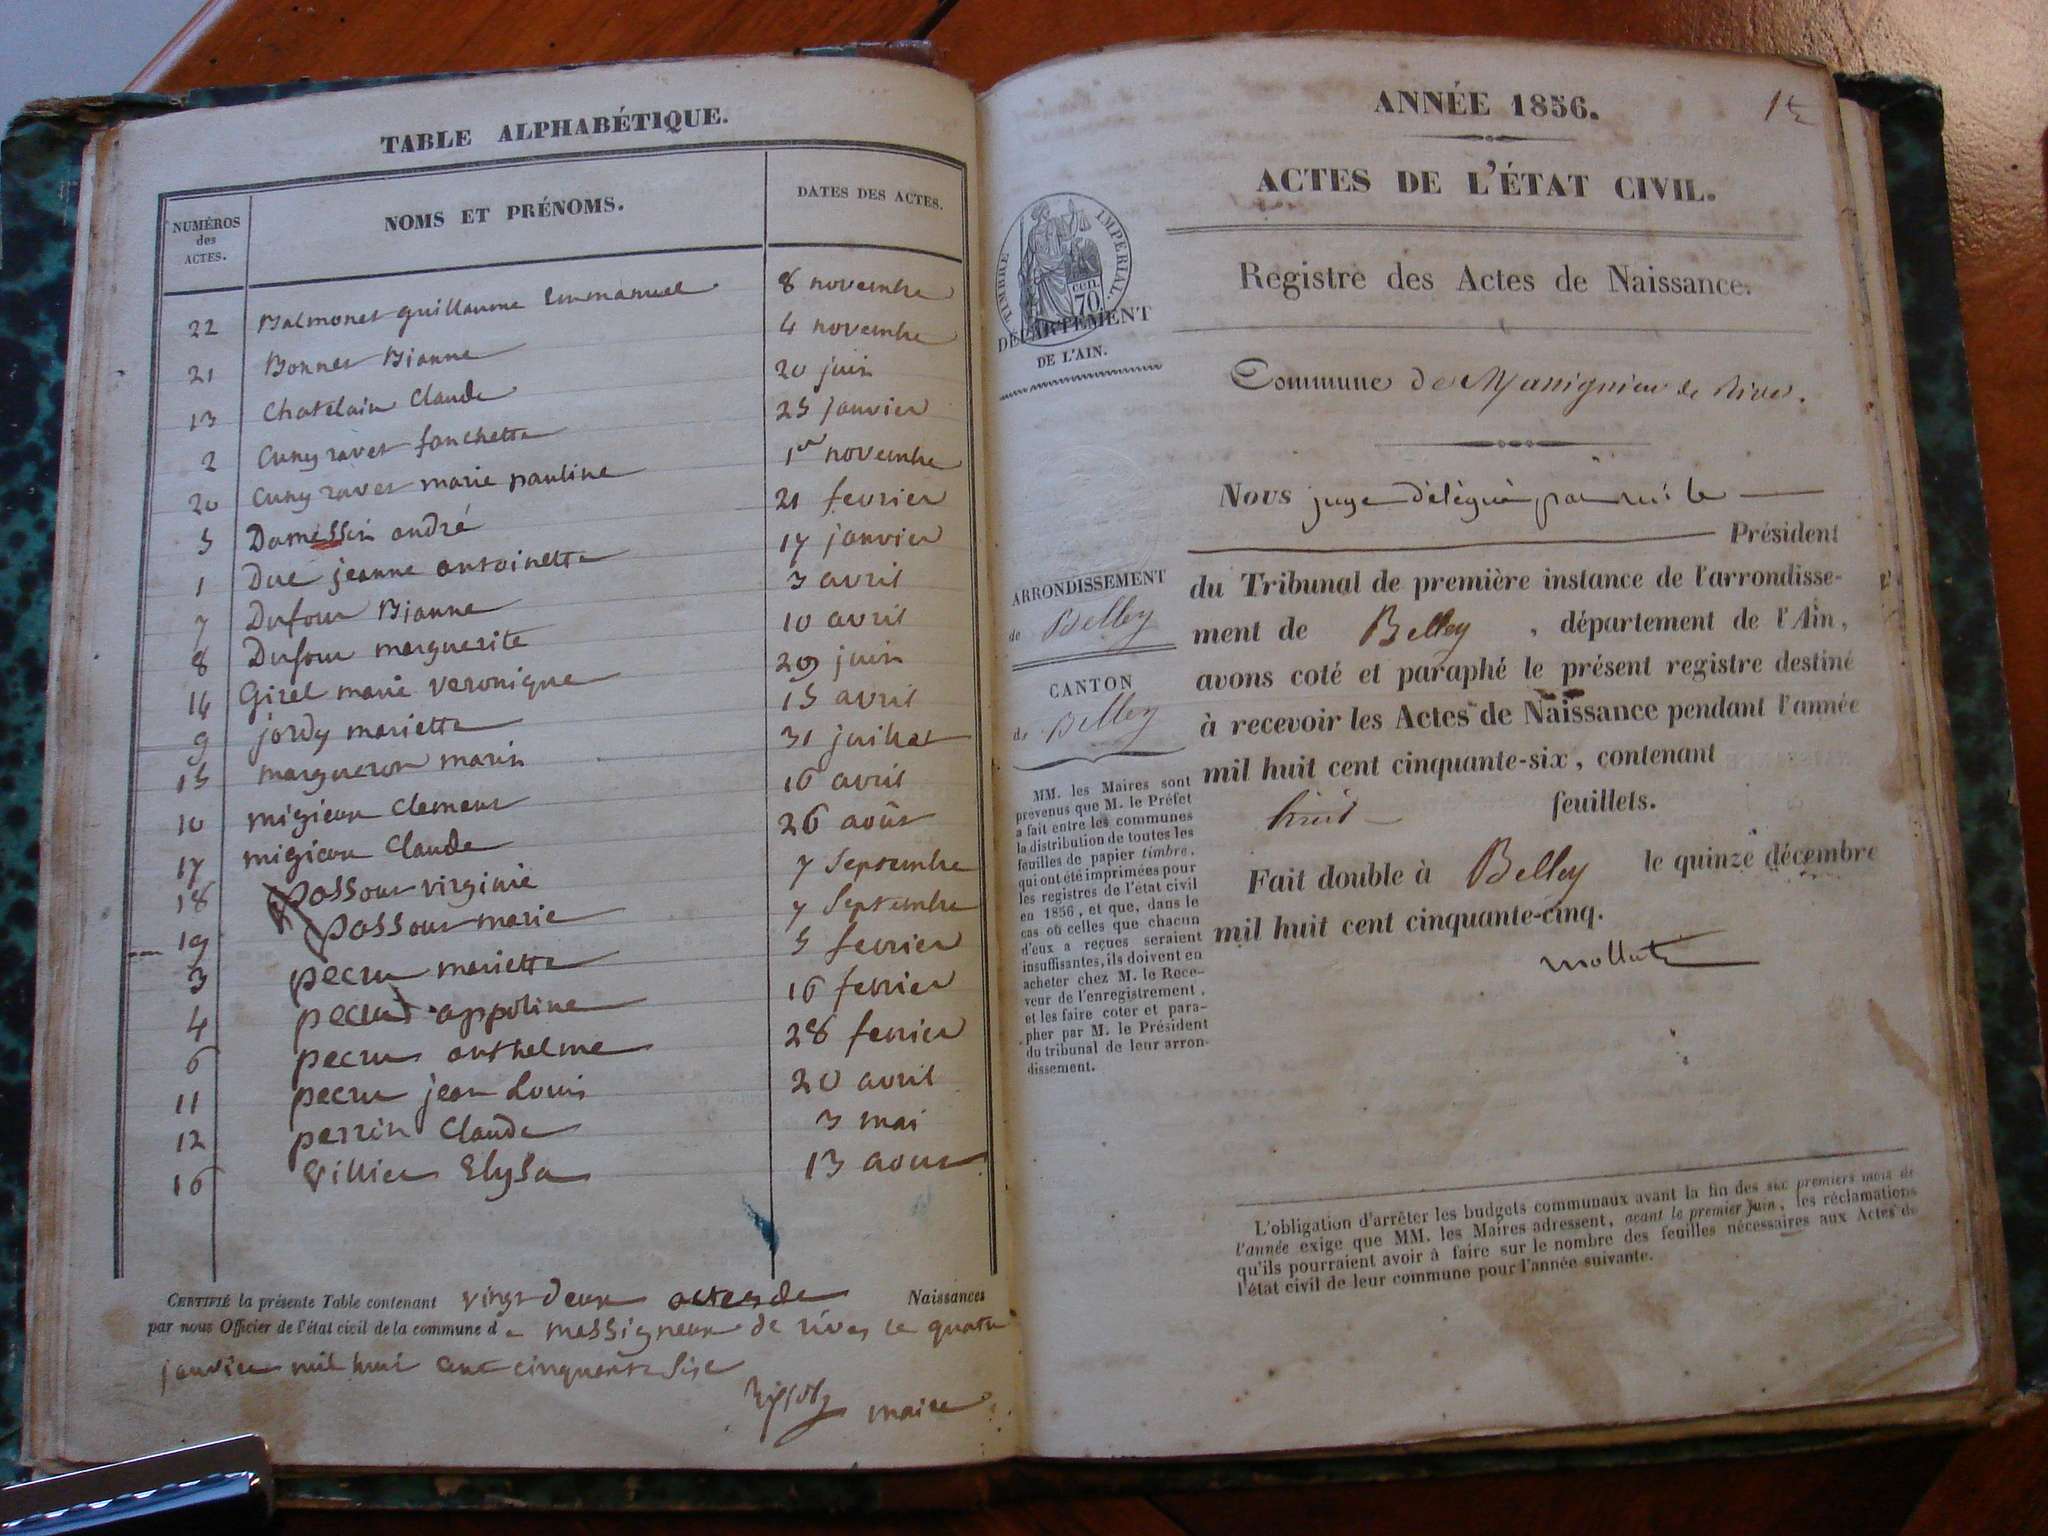 TABLE ALPHABÉTIQUE.
NUMÉROS des ACTES.
NOMS ET PRÉNOMS.
DATES DES ACTES.
22 Balmonet guillaume Emmanuel 8 novembre
21 Bonnet 4 novembre
13 Chatelain Claude 20 juin
2 Cuny ravet fanchette 25 janvier
20 Cuny ravet marie pauline 1er novembre
5 Damessin andré 21 fevrier
1 Duc jeanne antoinette 17 janvier
7 Dufour 3 avril
8 Dufour marguerite 10 avril
14 Girel marie veronique 29 juin
9 jordy mariette 15 avril
15 margueron marin 31 juillet
10 migieu Clement 16 avril
17 migieu Claude 26 août
18 possour virginie 7 Septembre
19 possour marie 7 Septembre
3 pecru mariette 5 fevrier
4 appoline 16 fevrier
6 pecru anthelme 28 fevrier
11 pecru jean Louis 20 avril
12 perrin Claude 3 mai
16 villiet Elysa 13 aout
CERTIFIÉ la présente Table contenant vingt deux actes de Naissances
par nous Officier de l'état civil de la commune de massigneux de rives le quatre
janvier mil huit cent cinquante six
maire
ANNÉE 1856.
ACTES DE L'ÉTAT CIVIL.
TIMBRE IMPÉRIAL.
CEN.
70
DÉPARTEMENT
DE L'AIN.
Registre des Actes de Naissance.
Commune de Massignieu de Rives.
Nous juge délégué par mr le
Président
ARRONDISSEMENT
de Belley
CANTON
de Belley
du Tribunal de première instance de l'arrondisse-
ment de Belley, département de l'Ain,
avons coté et paraphé le présent registre destiné
à recevoir les Actes de Naissance pendant l'année
mil huit cent cinquante-six, contenant
huit feuillets.
Fait double à Belley le quinze décembre
mil huit cent cinquante-cinq.
MM. les Maires sont
prévenus que M. le Préfet
a fait entre les communes
la distribution de toutes les
feuilles de papier timbré,
qui ont été imprimées pour
les registres de l'état civil
en 1856, et que, dans le
cas où celles que chacun
d'eux a reçues seraient
insuffisantes, ils doivent en
acheter chez M. le Rece-
veur de l'enregistrement,
et les faire coter et para-
pher par M. le Président
du tribunal de leur arron-
dissement.
L'obligation d'arrêter les budgets communaux avant la fin des six premiers mois de
l'année exige que MM. les Maires adressent, avant le premier Juin, les réclamations
qu'ils pourraient avoir à faire sur le nombre des feuilles nécessaires aux Actes de
l'état civil de leur commune pour l'année suivante.